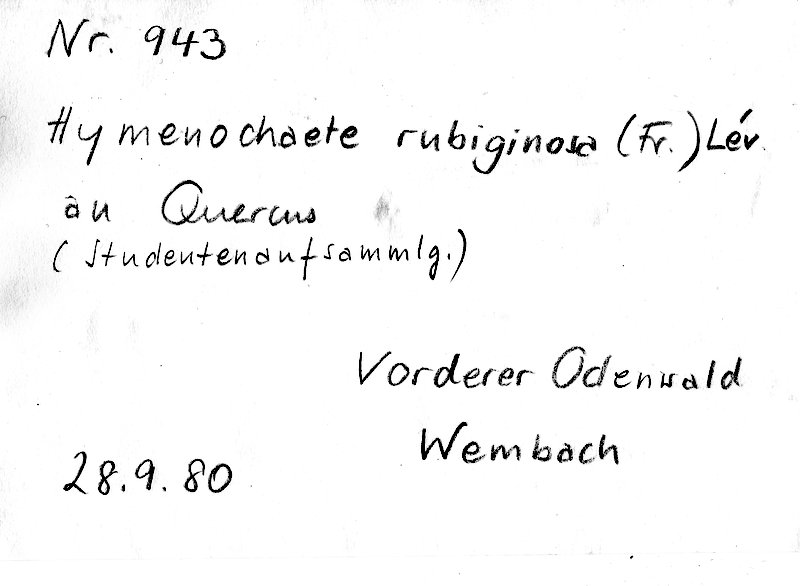 Nr. 943
Hymenochaete rubiginosa (Fr.) Lév.
an Quercus
(Studentenaufsammlg.)
Vorderer Odenwald
Wembach
28.9.80